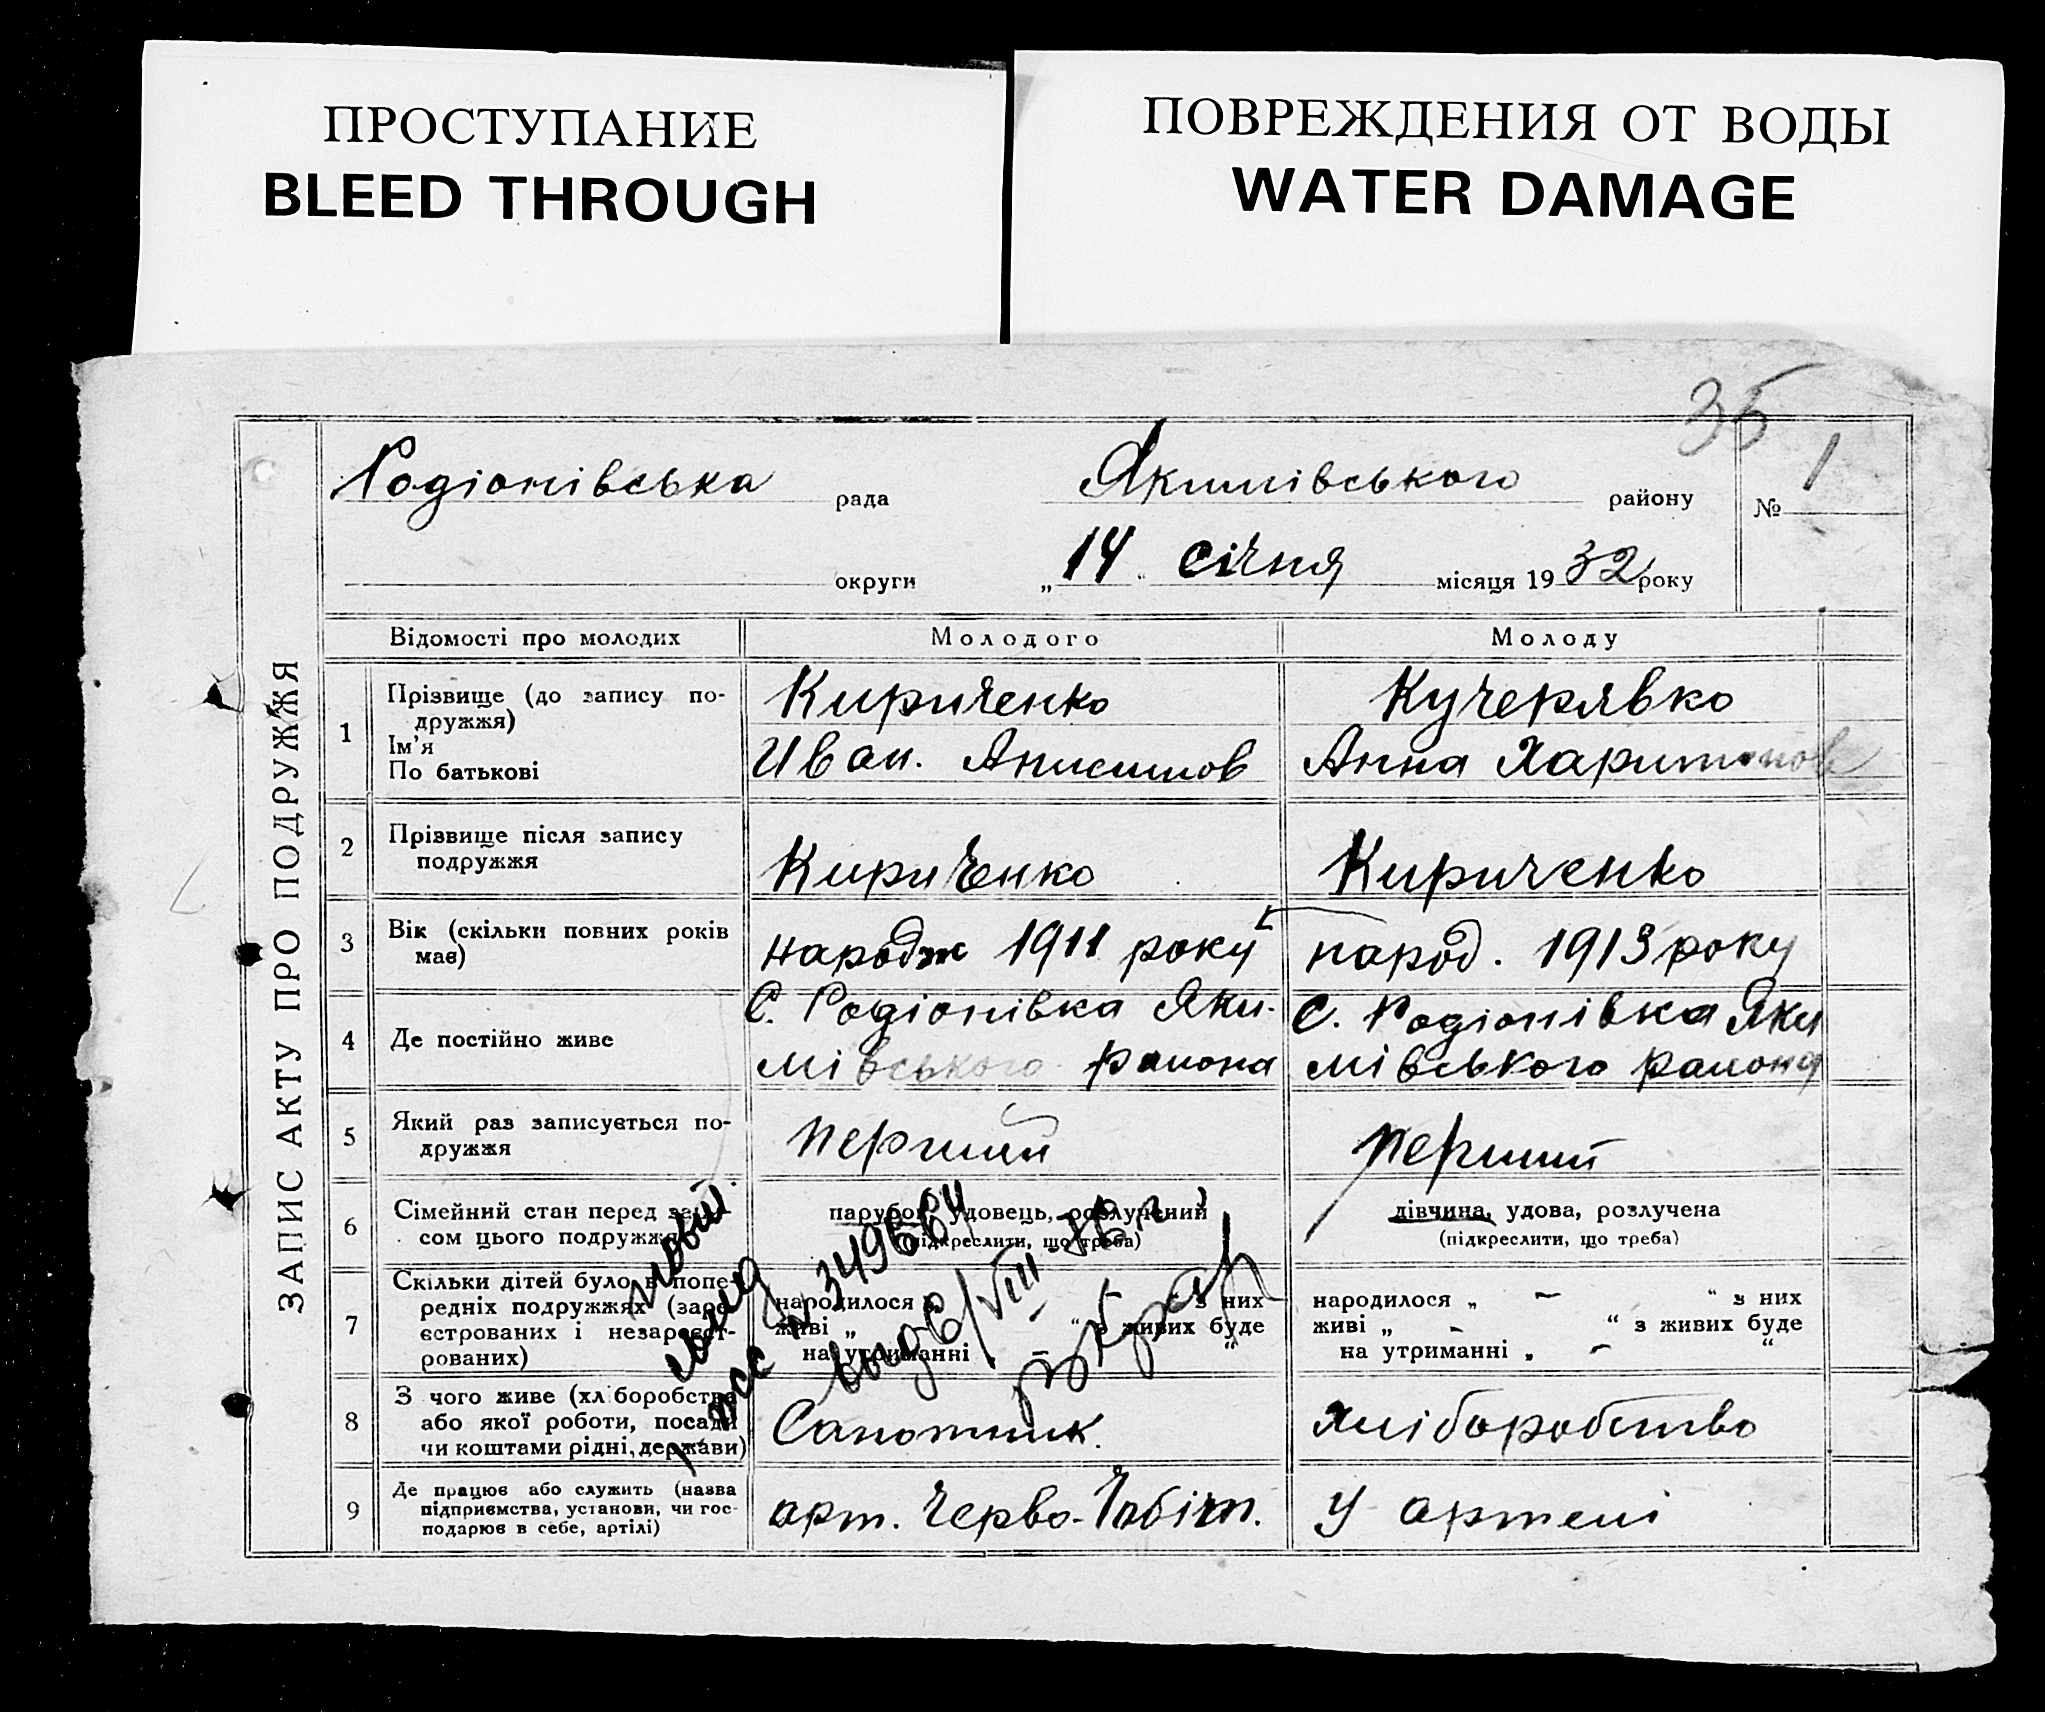 ПРОСТУПАНИЕ
BLEED THROUGH
ПОВРЕЖДЕНИЯ ОТ ВОДЫ
WATER DAMAGE
35
ЗАПИС АКТУ ПРО ПОДРУЖЖЯ
Родіонівська рада Якимівського району № 1
округи „14“ січня місяця 1932 року
Відомості про молодих Молодого Молоду
1 Прізвище (до запису по-
дружжя)
Ім’я
По батькові
Кириченко
Иван. Анисимов
Кучерявко
Анна Харитонов
2 Прізвище після запису
подружжя
Кириченко
Кириченко
3 Вік (скільки повних років
має)
народж 1911 року
народ. 1913 року
4 Де постійно живе
С. Родіонівка Яки-
мівського района
С. Родіонівка Яки
мівського района
5 Який раз записується по-
дружжя
перший
перший
6 Сімейний стан перед запи-
сом цього подружжя
парубок, удовець, розлучений
(підкреслити, що треба)
дівчина, удова, розлучена
(підкреслити, що треба)
7 Скільки дітей було в попе-
редніх подружжях (заре-
єстрованих і незареєст-
рованих)
народилося „ “ з них
живі „ “ з живих буде
на утриманні „ – “
народилося „ – “ з них
живі „ – “ з живих буде
на утриманні „ – “
349664
8 З чого живе (хліборобства
або якої роботи, посади
чи коштами рідні, держави)
Сапожник.
хліборобство
9 Де працює або служить (назва
підприємства, установи, чи гос-
подарює в себе, артілі)
арт. Черво-
У артелі